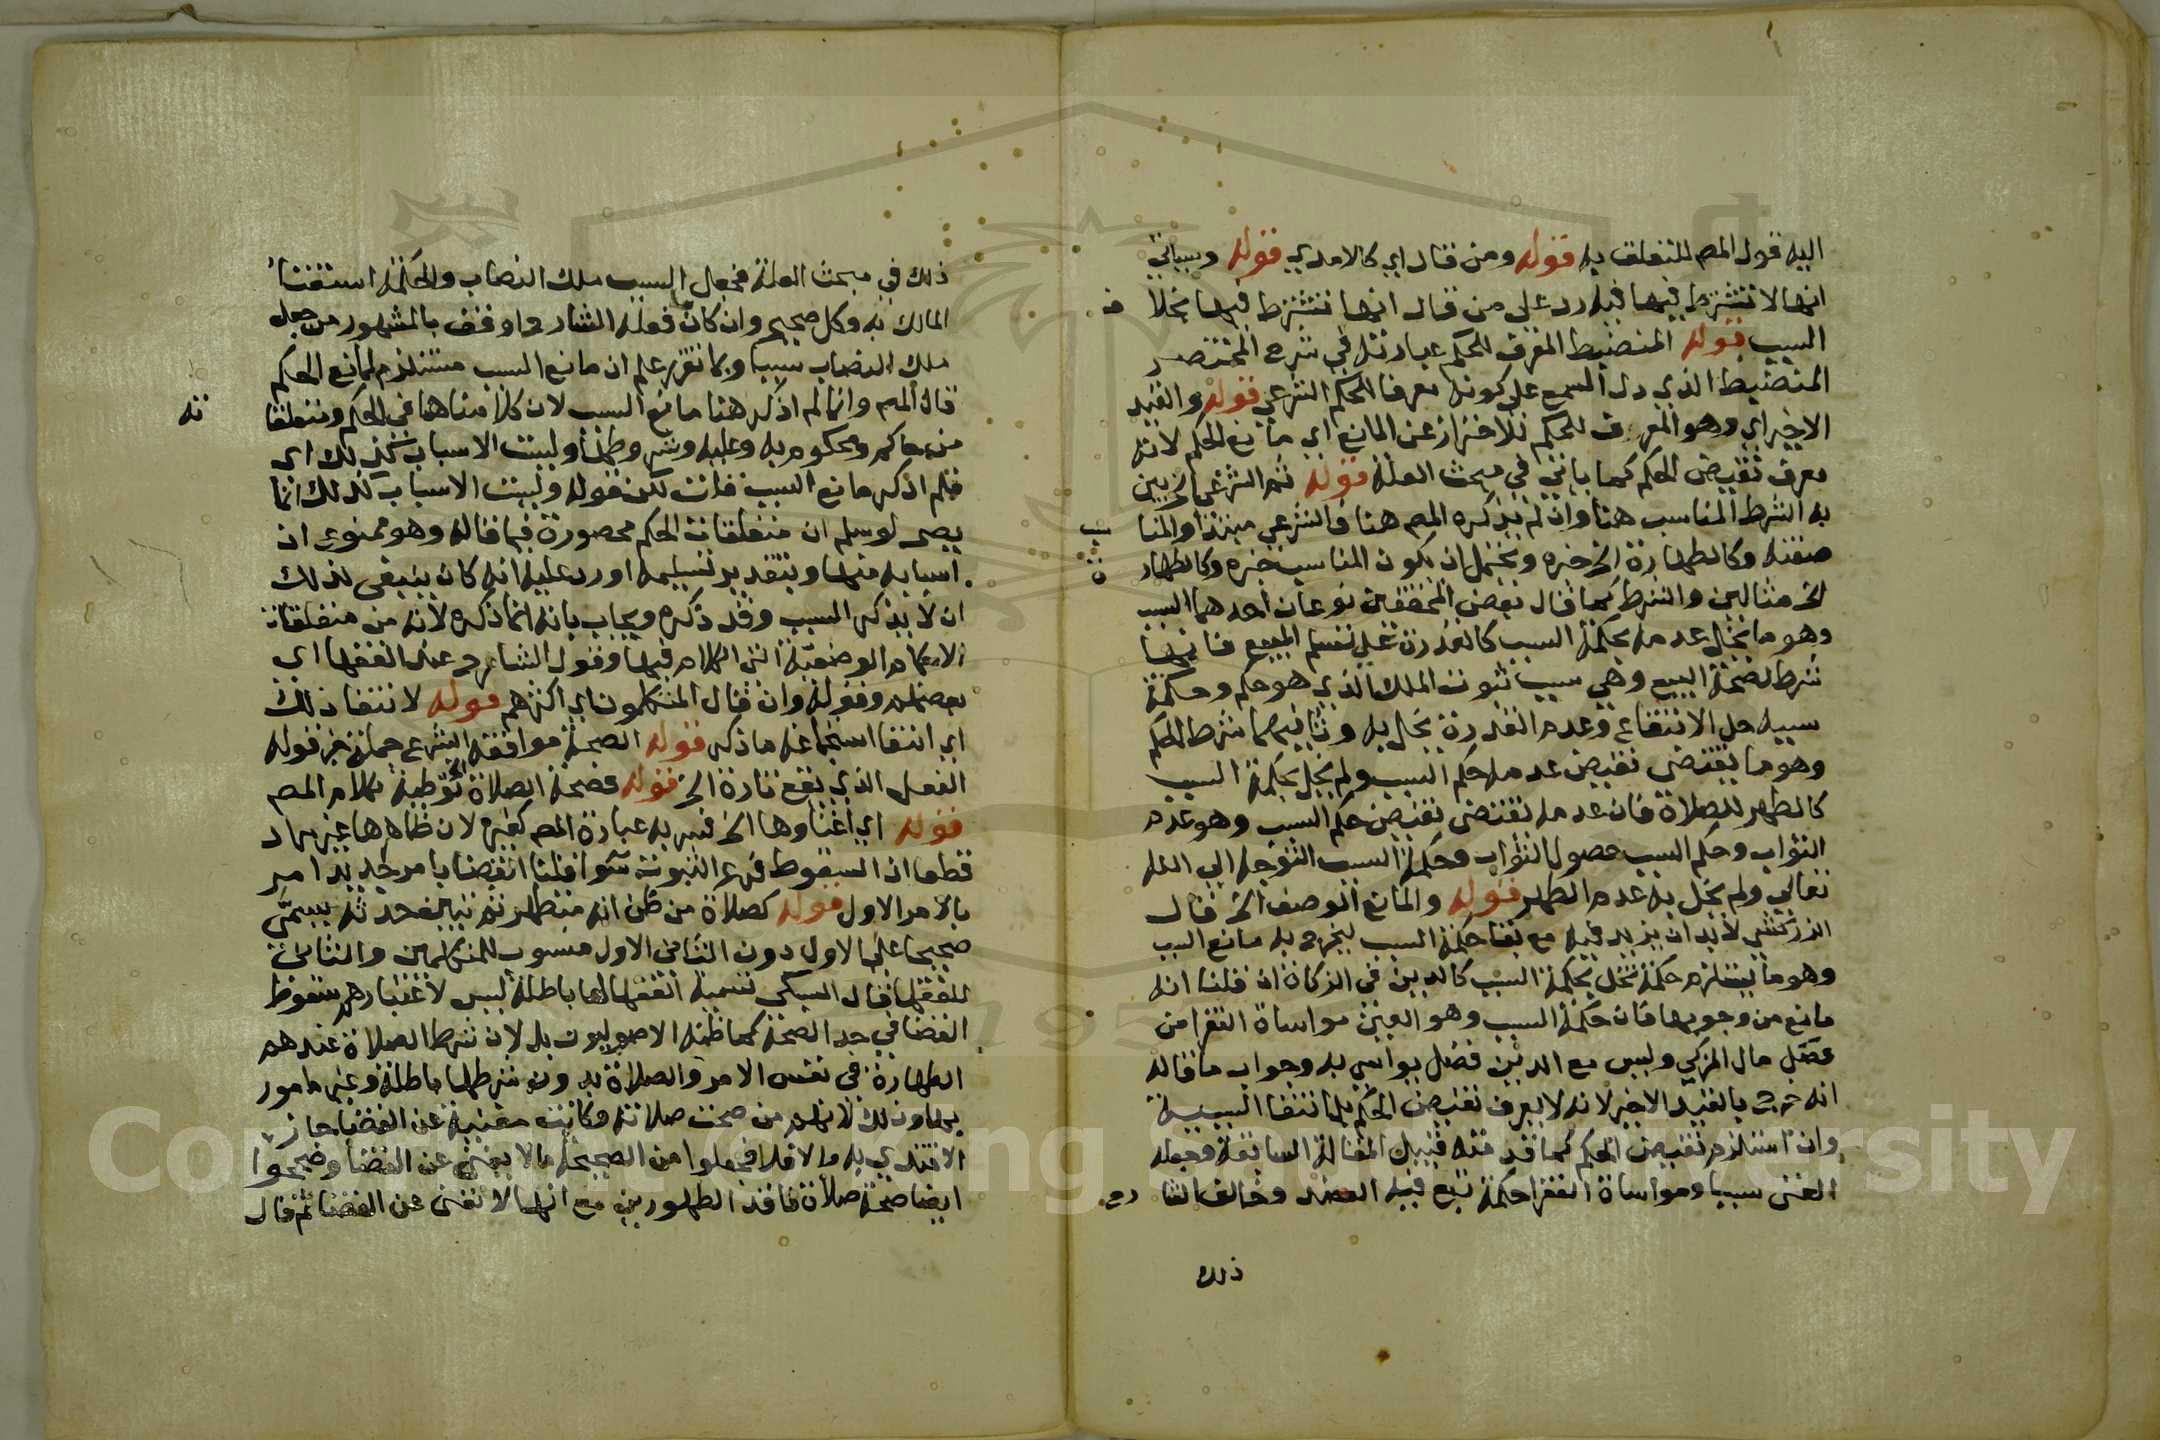 اليه قول المص للتعلق به قوله ومن قال اي كالامدي قوله وسياتي
انها لا تشترط فيها فيه رد على من قال انها تشترط فيها بخلا ف
السبب قوله المنضبط المعرف للحكم عبارته في شرح المختصر
المنضبط الذي دل السمع على كونه معرفا للحكم الشرعي قوله والقيد
الاخير اي وهو المعرف للحكم للاحتراز عن المانع اي مانع الحكم لانه
معرف نقيض الحكم كما ياتي في مبحث العلة قوله ثم الشرعي الخ بين
به الشرط المناسب هنا وان لم يذكره المص هنا فالشرعي مبتدا والمنا سب
صفته وكالطهارة الخ خبره ويحتمل ان يكون المناسب خبره وكالطهار ة
الخ مثالين والشرط كما قال بعض المحققين نوعان احدهما السبب
وهو ما يخل عدمه بحكمة السبب كالقدرة على تسليم المبيع فانها
شرط لصحة البيع وهي سبب ثبوت الملك الذي هو حكم وحكمة
سببه حل الانتفاع وعدم القدرة يخل به وثانيهما شرط الحكم
وهو ما يقتضي نقيض عدمه حكم السبب ولم يخل بحكمة السبب
كالطهر للصلاة فان عدمه يقتضي نقيض حكم السبب وهو عدم
الثواب وحكم السبب حصول الثواب وحكمة السبب التوجه الى الله
تعالى ولم يخل به عدم الطهر قوله والمانع الوصف الخ قال
الزركشي لا بد ان يزيد فيه مع بقا حكمة السبب ليخرج به مانع السبب
وهو ما يستلزم حكمة تخل بحكمة السبب كالدين في الزكاة ان قلنا انه
مانع من وجوبها فان حكمة السبب وهو الغنى مواساة الفقرا من
فضل مال المزكي وليس مع الدين فضل يواسي به وجواب ما قاله
انه خرج بالقيد الاخير لانه لا يعرف نقيض الحكم بل انتفا السببية
وان استلزم نقيض الحكم كما قد مته قبيل المقالة السابقة وجعله
الغنى سببا ومواساة الفقرا حكمة تبع فيه العضد وخالف الشا رح
ذلك
ذلك في مبحث العلة فجعل السبب ملك النصاب والحكمة استغنا
المالك به وكل صحيح وان كان قوله الشارح اوفق بالمشهور من جعل
ملك النصاب سببا وبما تقرر علم ان مانع السبب مستلزم لمانع الحكم
قال المص وانما لم اذكر هنا مانع السبب لان كلامنا هنا في الحكم ومتعلقا ته
من حاكم ومحكوم به وعليه وشروطها وليست الاسباب من ذلك اي
فلم اذكر مانع السبب قلت لكن قوله وليست الاسباب كذلك انما
يصح لو سلم ان متعلقات الحكم محصورة فيما قاله وهو ممنوع اذ
اسبابه منها وبتقدير تسليمه اورد عليه انه كان ينبغي لذلك
ان لا يذكر السبب وقد ذكره ويجاب بانه انما ذكره لانه من متعلقات
الاحكام الوضعية التي الكلام فيها وقول الشارح عند الفقها اي
بعضهم وقوله وان قال المتكلمون اي اكثرهم قوله لانتفا ذلك
اي انتفا استجماعه ما ذكر قوله الصحة موافقة الشرع جملة خبر قوله
الفعل الذي يقع تارة الخ قوله فصحة الصلاة الخ توطية لكلام المص
قوله اي اغناوها الخ فسر به عبارة المص كغيره لان ظاهرها غير مراد
قطعا اذ السقوط فرع الثبوت سوا قلنا القضا بامر جديد ام
بالامر الاول قوله كصلاة من ظن انه متطهر ثم تبين حدثه يسمى
صحيحا على الاول دون الثاني الاول منسوب للمتكلمين والثاني
للفقها قال السبكي تسمية الفقها لها باطلة ليس لاعتبارهم سقوط
القضا في حد الصحة كما ظنه الاصوليون بل لان شرط الصلاة عندهم
الطهارة في نفس الامر والصلاة بدون شرطها باطلة وغير مامور
بها وذلك لانه من صحت صلاته وكانت مغنية عن القضا جاز
الاقتدي به والا فلا فجعلوا من الصحيحة ما لا يغني عن القضا وصححوا
ايضا صحة صلاة فاقد الطهورين مع انها لا تغني عن القضا ثم قال